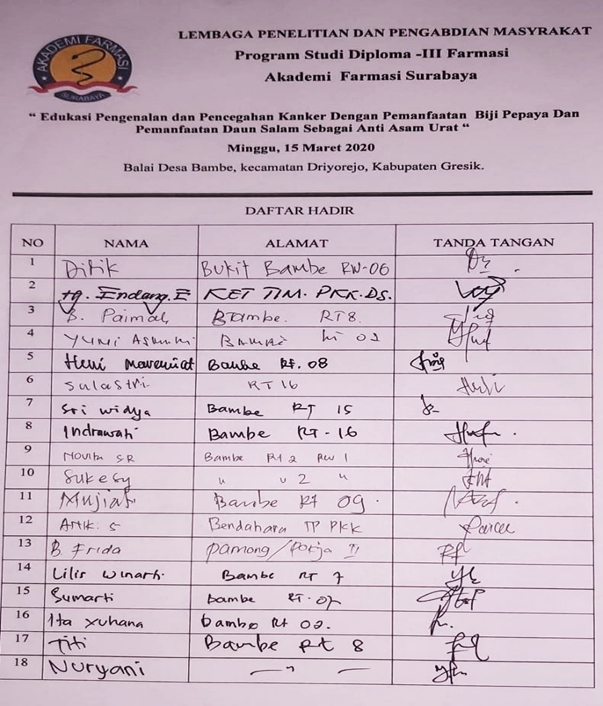 AKADEMI FARMASI
SURABAYA
LEMBAGA PENELITIAN DAN PENGABDIAN MASYRAKAT
Program Studi Diploma -III Farmasi
Akademi Farmasi Surabaya
“ Edukasi Pengenalan dan Pencegahan Kanker Dengan Pemanfaatan Biji Pepaya Dan
Pemanfaatan Daun Salam Sebagai Anti Asam Urat “
Minggu, 15 Maret 2020
Balai Desa Bambe, kecamatan Driyorejo, Kabupaten Gresik.
DAFTAR HADIR
NO NAMA ALAMAT TANDA TANGAN
1 Didik Bukit Bambe RW-06
2 Endang. E KET TIM. PKK. DS.
3 B. Paimah Bambe. RT8.
4 Yuni
5 Heni Bambe Rt. 08
6 Sulastri. RT 16
7 Sri widya Bambe RT 15
8 Indrawati Bambe RT-16
9 Novita SR Bambe Rt 2 RW 1
10 Sukesy " " 2 "
11 Mujiati Bambe Rt 09.
12 Atik. S Bendahara TP PKK
13 B. Frida Pamong/Pokja III
14 Lilis Winarti. Bambe RT 7
15 Sumarti bambe RT-07
16 Ita Yuhana bambe Rt 02.
17 Titi Bambe Rt 8
18 Nuryani — " —